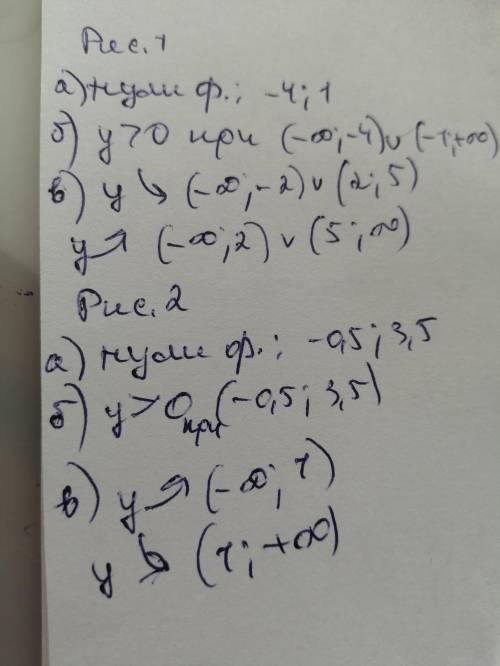 Рис. 1
а) нули ф.: -4; 1
б) y>0 при (-∞; -4) ∪ (-1; +∞)
в) y ↘ (-∞; -2) ∪ (2; 5)
y ↗ (-∞; 2) ∪ (5; ∞)
Рис. 2
а) нули ф.: -0,5; 3,5
б) y>0 при (-0,5; 3,5)
в) y ↗ (-∞; 1)
y ↘ (1; +∞)